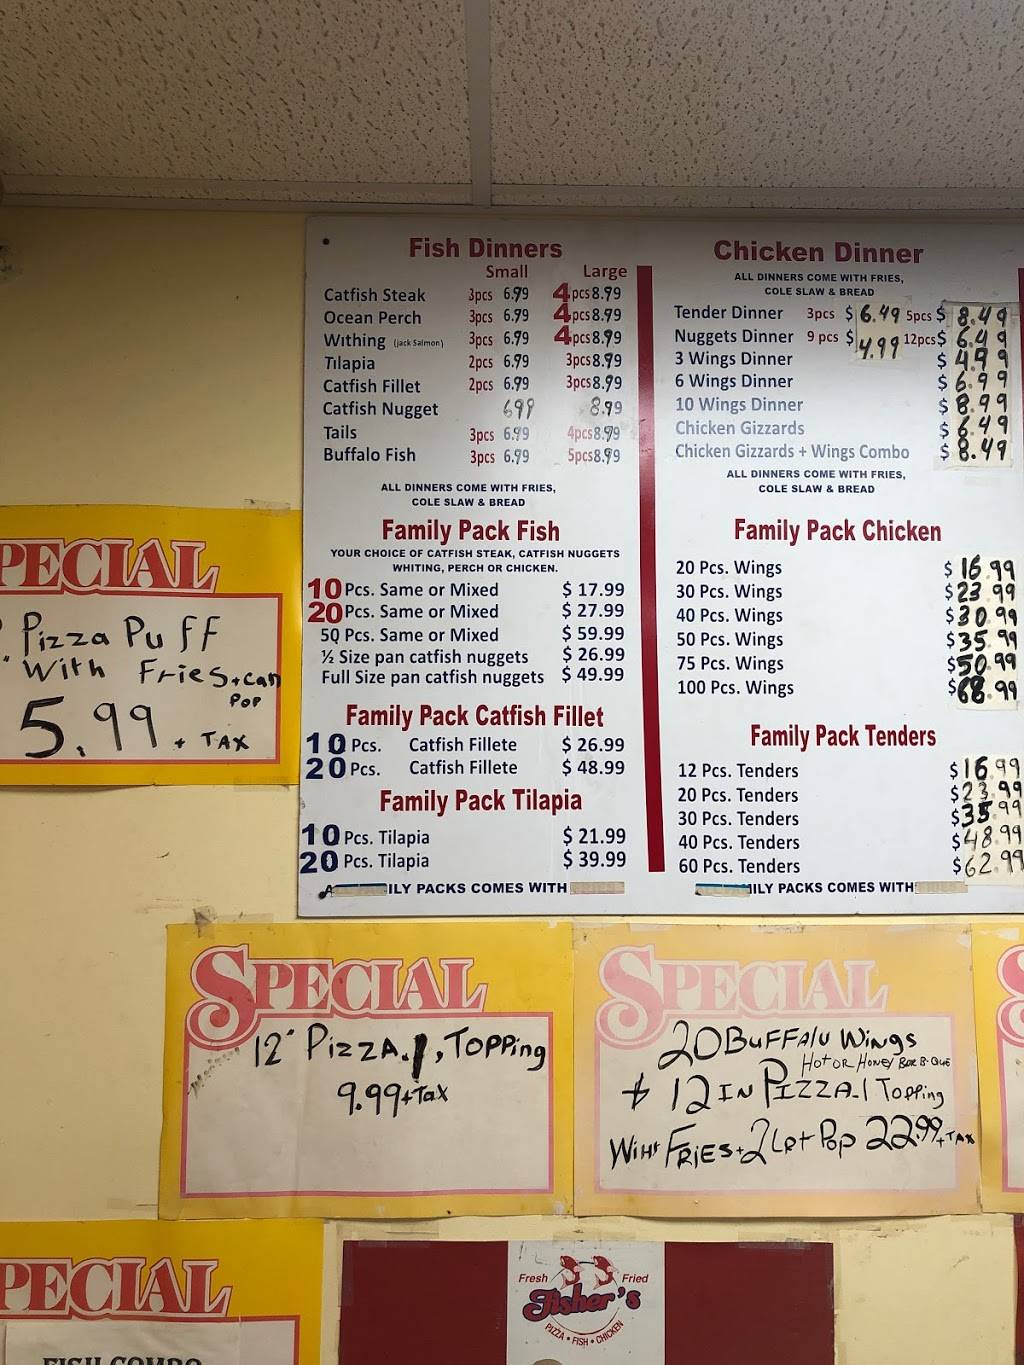 Fish Dinners
Small Large
Catfish Steak 3pcs 6.99 4pcs 8.99
Ocean Perch 3pcs 6.99 4pcs 8.99
Withing (Jack Salmon) 3pcs 6.99 4pcs 8.99
Tilapia 2pcs 6.99 3pcs 8.99
Catfish Fillet 2pcs 6.99 3pcs 8.99
Catfish Nugget 6.99 8.99
Tails 3pcs 6.99 4pcs 8.99
Buffalo Fish 3pcs 6.99 5pcs 8.99
ALL DINNERS COME WITH FRIES,
COLE SLAW & BREAD
Family Pack Fish
YOUR CHOICE OF CATFISH STEAK, CATFISH NUGGETS
WHITING, PERCH OR CHICKEN.
10 Pcs. Same or Mixed $ 17.99
20 Pcs. Same or Mixed $ 27.99
50 Pcs. Same or Mixed $ 59.99
½ Size pan catfish nuggets $ 26.99
Full Size pan catfish nuggets $ 49.99
Family Pack Catfish Fillet
10 Pcs. Catfish Fillete $ 26.99
20 Pcs. Catfish Fillete $ 48.99
Family Pack Tilapia
10 Pcs. Tilapia $ 21.99
20 Pcs. Tilapia $ 39.99
A ILY PACKS COMES WITH
Chicken Dinner
ALL DINNERS COME WITH FRIES,
COLE SLAW & BREAD
Tender Dinner 3pcs $ 6.49 5pcs $ 8.49
Nuggets Dinner 9 pcs $ 4.99 12pcs $ 6.49
3 Wings Dinner $ 4.99
6 Wings Dinner $ 6.99
10 Wings Dinner $ 8.99
Chicken Gizzards $ 6.49
Chicken Gizzards + Wings Combo $ 8.49
ALL DINNERS COME WITH FRIES,
COLE SLAW & BREAD
Family Pack Chicken
20 Pcs. Wings $ 16.99
30 Pcs. Wings $ 23.99
40 Pcs. Wings $ 30.99
50 Pcs. Wings $ 35.99
75 Pcs. Wings $ 50.99
100 Pcs. Wings $ 68.99
Family Pack Tenders
12 Pcs. Tenders $ 16.99
20 Pcs. Tenders $ 23.99
30 Pcs. Tenders $ 35.99
40 Pcs. Tenders $ 48.99
60 Pcs. Tenders $ 62.99
ILY PACKS COMES WITH
PECIAL
Pizza Puff
With Fries + can
Pop
5.99 + TAX
SPECIAL
12" PIZZA. 1, TOPPing
9.99 + Tax
SPECIAL
20 BuFFAlu Wings
HOT OR HONEY BAR B-QUE
& 12 IN PIZZA-1 Topping
WitH FRiES + 2 Lrt Pop 22.99 + TAX
S
PECIAL
FISH COMBO
Fresh Fried
Fisher's
PIZZA • FISH • CHICKEN